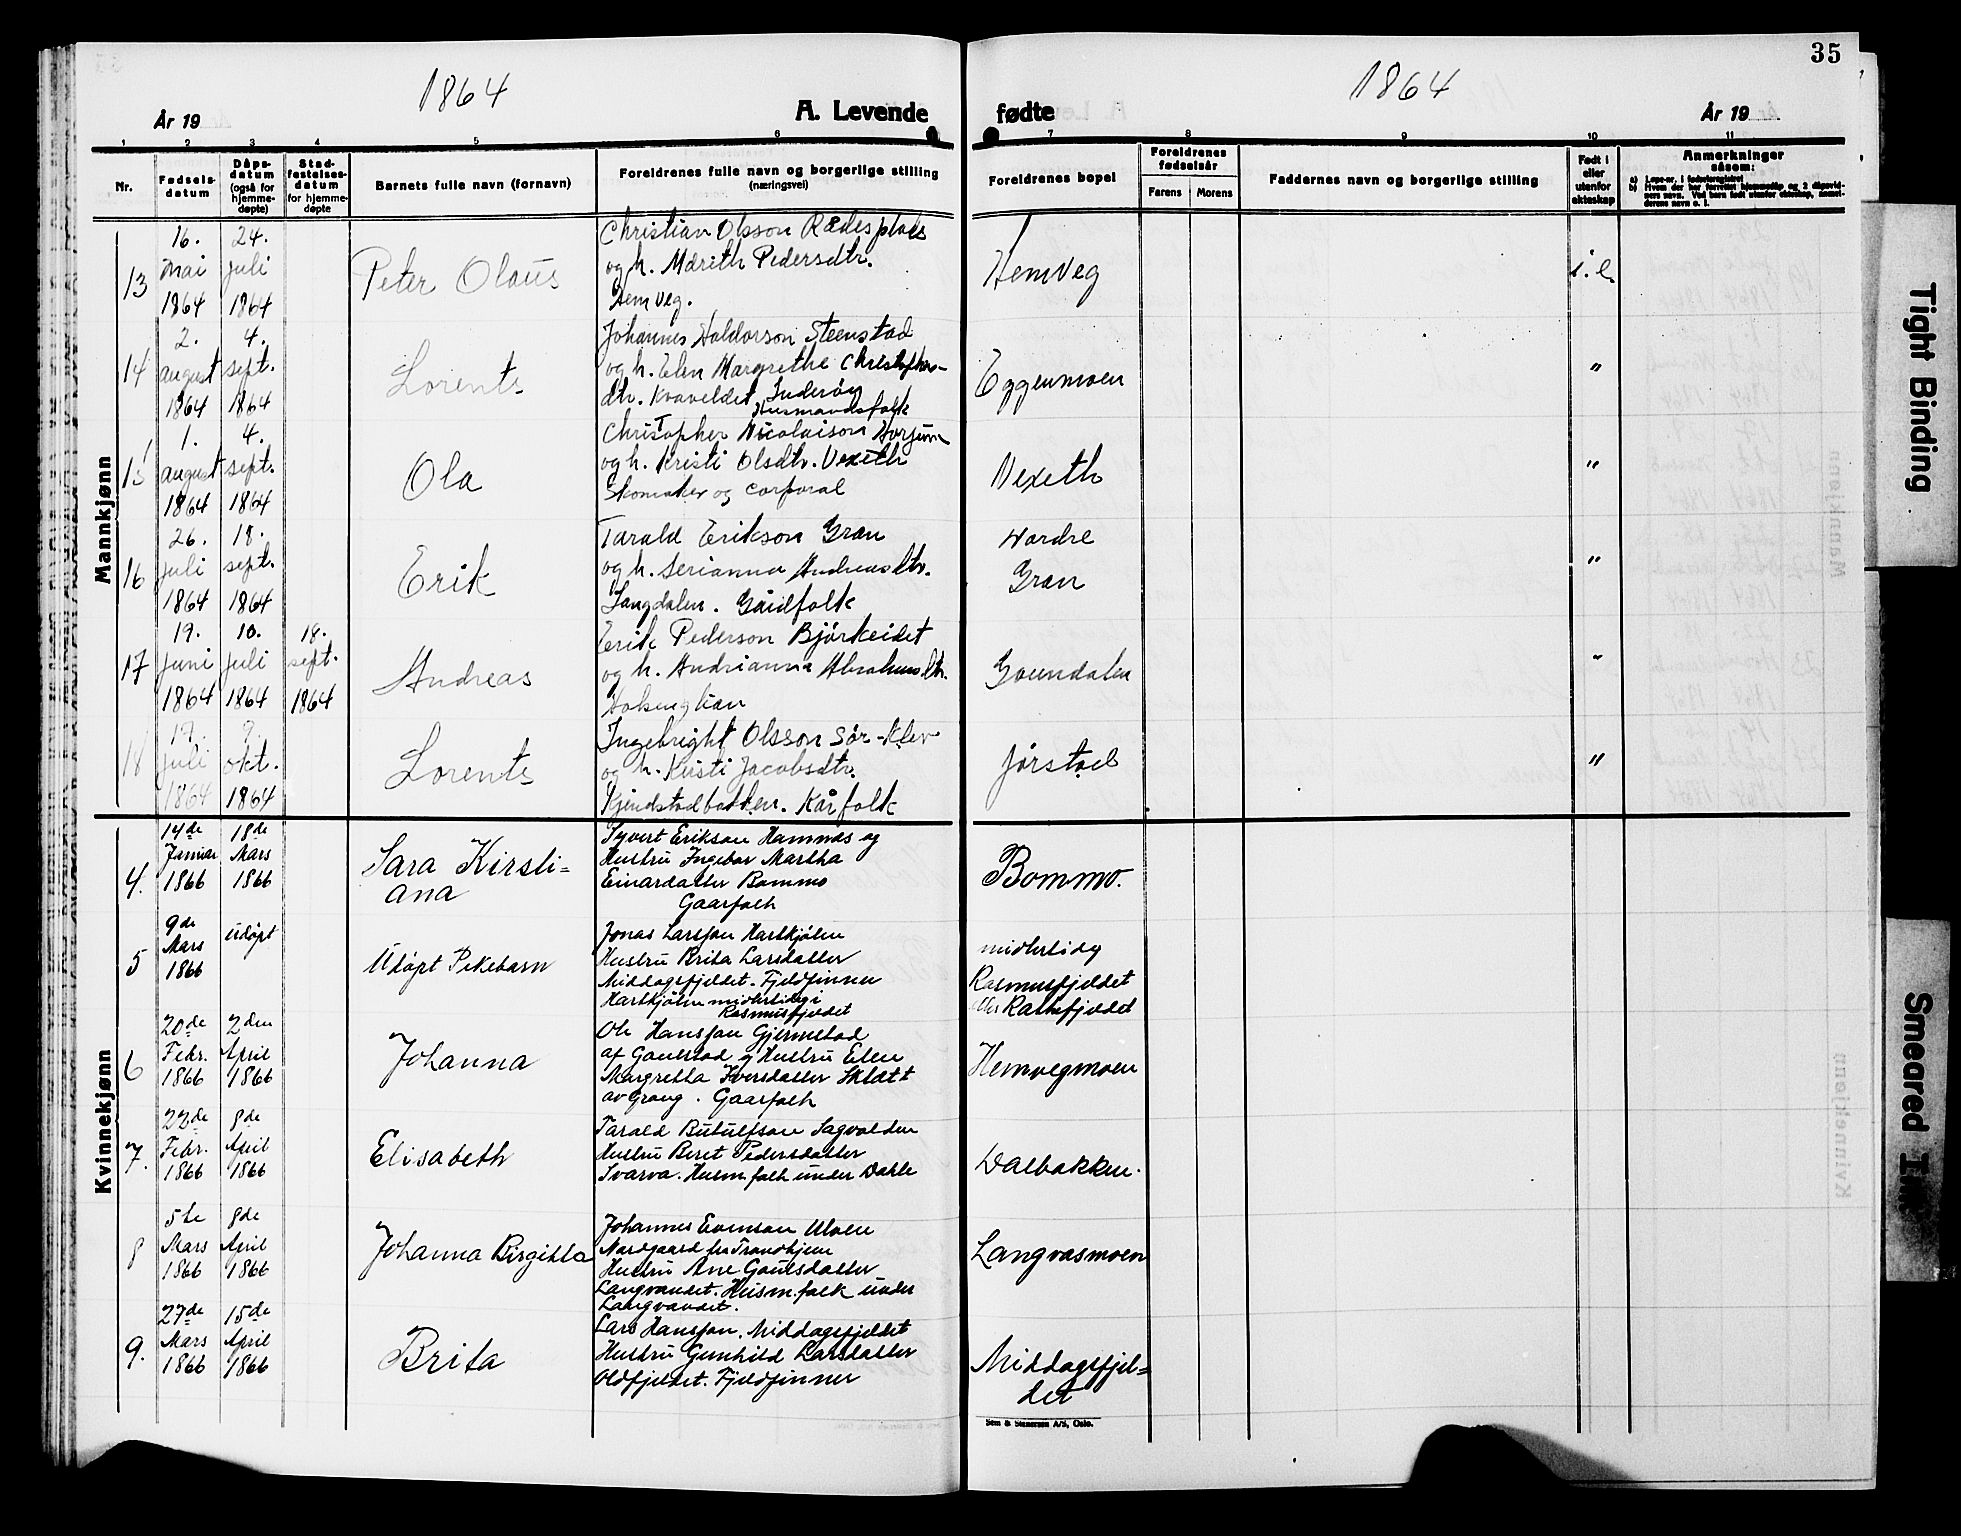 35
1864
1864
År 19
A. Levende
fødte
År 19
1 2 3 4 5 6 7 8 9 10 11
Nr.
Fødsels-
datum
Dåps-
datum
(også for
hjemme-
døpte)
Stad-
festelses-
datum
for hjemme-
døpte
Barnets fulle navn (fornavn)
Foreldrenes fulle navn og borgerlige stilling
(næringsvei)
Foreldrenes bopel
Foreldrenes
fødselsår
Farens
Morens
Faddernes navn og borgerlige stilling
Født i
eller
utenfor
ekteskap
Anmerkninger
såsom:
Mannkjønn
13
16.
mai
1864
24.
juli
1864
Peter Olaus
Christian Olsson Rædesplads
og h. Marith Pedersdtr.
Hemveg.
Hemveg
i. e.
14
2.
august
1864
4.
sept.
1864
Lorents
Johannes Haldorson Steenstad
og h. Elen Margrethe Christopher-
dtr. Kvaveldet, Inderøy
Husmandsfolk
Eggenmoen
"
15
1.
august
1864
4.
sept.
1864
Ola
Christopher Nicolaison Horjum
og h. Kristi Olsdtr. Vexeth
Skomaker og corporal
Vexeth
"
16
26.
juli
1864
18.
sept.
1864
Erik
Tarald Erikson Gran
og h. Serianna Andreasdtr.
Langdalen. Gårdfolk
Nordre
Gran
"
17
19.
juni
1864
10.
juli
1864
18.
sept.
1864
Andreas
Erik Pederson Bjørkeidet
og h. Andrianna Abrahamsdtr.
"
18
juli
1864
okt.
1864
Lorents
Ingebright Olsson Sør-Klev
og h. Kristi Jacobsdtr.
Kjendstadbakken. Kårfolk
Jørstad
"
Kvinnekjønn
4.
14de
Januar
1866
18de
Mars
1866
Sara Kirsti=
ana
Syvert Erikson Hamnes og
Hustru Ingebor Martha
Einardatter Bommo
Gaarfolk
Bommo.
5
9de
Mars
1866
Udøpt
Udøpt Pikebarn
Jonas Larsson Hartkjølen
Hustru Brita Larsdatter
Middagsfjeldet. Fjeldfinner
Hartkjølen midlertidig i
Rasmusfjeldet
midlertidig
Rasmusfjeldet
6
20de
Febr.
1866
2den
April
1866
Johanna
Ole Hansson Gjermstad
af Gaulstad og Hustru Elen
Margretta Iversdatter Sklett
av Grong. Gaarfolk
Hemvegmoen
7.
22de
Febr.
1866
8de
April
1866
Elisabeth
Tarald Butulfson Sagvolden
Hustru Beret Pedersdatter
Svarva. Husm.folk under Dahle
Dalbakken.
8
5te
Mars
1866
8de
April
1866
Johanna Birgitta
Johannes Evenson Ulven
Nordgaard fra Trondhjem
Hustru Ane Gaulsdatter
Langvandet. Husm.folk under
Langvandet.
Langvasmoen
9.
27de
Mars
1866
15de
April
1866
Brita
Lars Hansson. Middagsfjeldet
Hustru Gunhild Larsdatter
Oldfjeldet. Fjeldfinner
Middagsfjel=
det
Sem & Stenersen A/S, Oslo.
Tight Binding
Smeared Ink